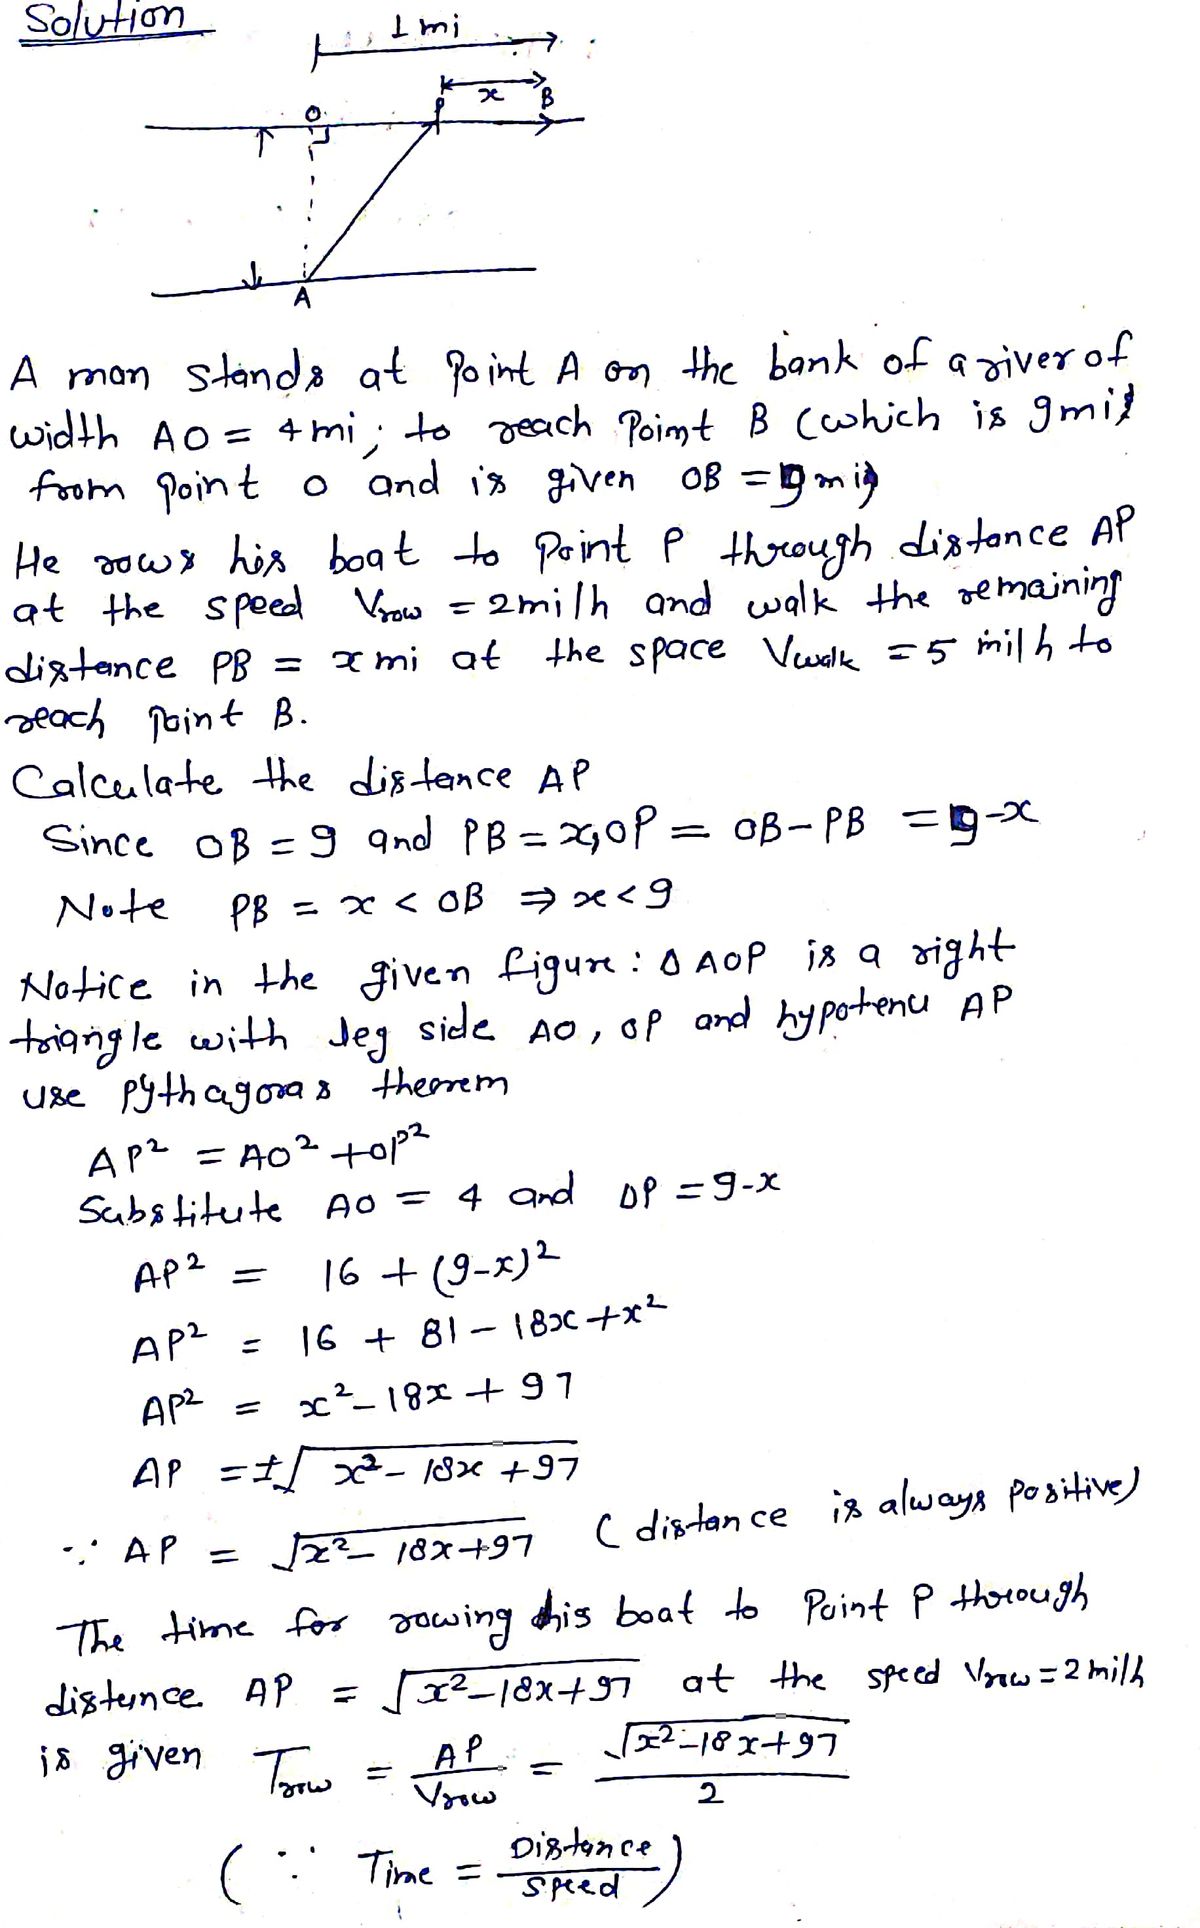 Solution
1 mi
x
O
P
B
A
A man stands at Point A on the bank of a river of
width AO = 4 mi, to reach Point B (which is 9 mi
from point O and is given OB = 9 mi)
He rows his boat to Point P through distance AP
at the speed Vrow = 2 mi/h and walk the remaining
distance PB = x mi at the space Vwalk = 5 mi/h to
reach point B.
Calculate the distance AP
Since OB = 9 and PB = x, OP = OB - PB = 9-x
Note PB = x < OB ⇒ x < 9
Notice in the given figure: Δ AOP is a right
triangle with leg side AO, OP and hypotenu AP
use pythagoras theorem
AP² = AO² + OP²
Substitute AO = 4 and OP = 9-x
AP² = 16 + (9-x)²
AP² = 16 + 81 - 18x + x²
AP² = x² - 18x + 97
AP = ±√x² - 18x + 97
∵ AP = √x² - 18x + 97 (distance is always positive)
The time for rowing this boat to Point P through
distance AP = √x²-18x+97 at the speed Vrow = 2 mi/h
is given Trow = AP/Vrow = √x²-18x+97/2
(∵ Time = Distance/Speed)